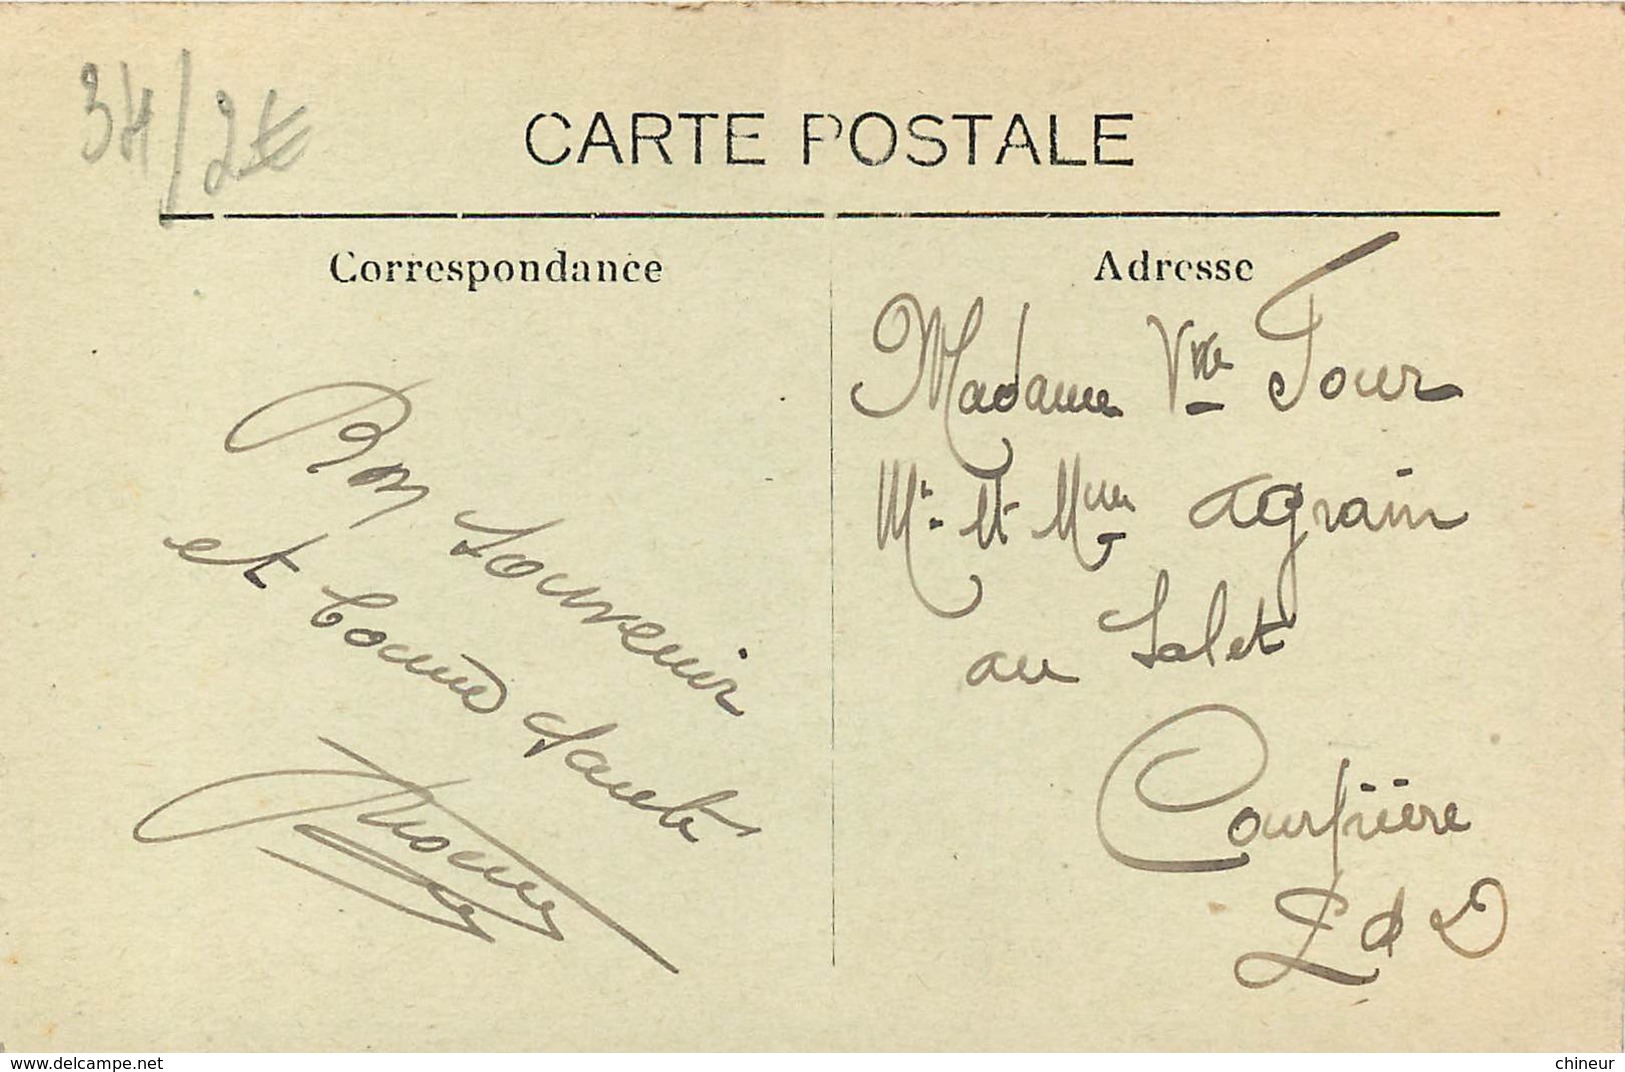 34/2€
CARTE POSTALE
Correspondance
Bon Souvenir
et bonne Santé
Thomas
Adresse
Madame Vve Four
Mr et Mme Agrain
au Salet
Courpière
P d D
www.delcampe.net
chineur